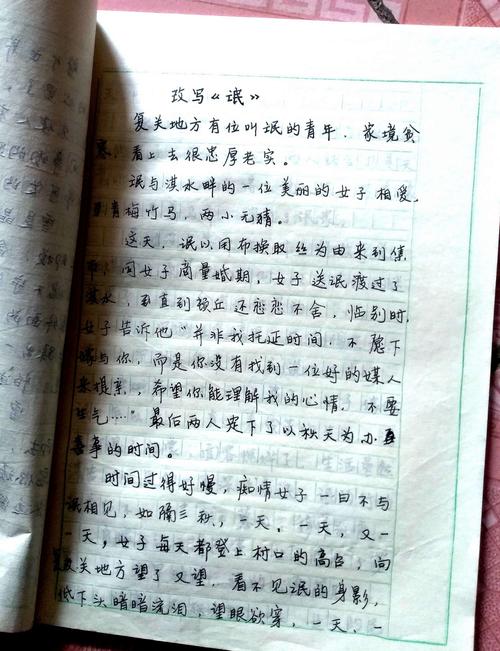 改写《氓》
复关地方有位叫氓的青年、家境贫
寒、看上去很忠厚老实.
氓与淇水畔的一位美丽的女子相爱,
青梅竹马、两小无猜。
这天、氓以用布换取丝为由来到
同女子商量婚期,女子送氓渡过了
淇水,直到顿丘还恋恋不舍,临别时,
女子告诉他"并非我托延时间,不愿下
嫁与你,而是你没有找到一位好的媒人
来提亲,希望你能理解我的心情,不要
生气…"最后两人定下了以秋天为办
喜事的时间。
时间过得好慢,痴情女子一日不与
氓相见,如隔三秋,一天、一天,又一
一天,女子每天都登上村口的高台,向
复关地方望了又望,看不见氓的身影,
低下头暗暗流泪,望眼欲穿,一天、一